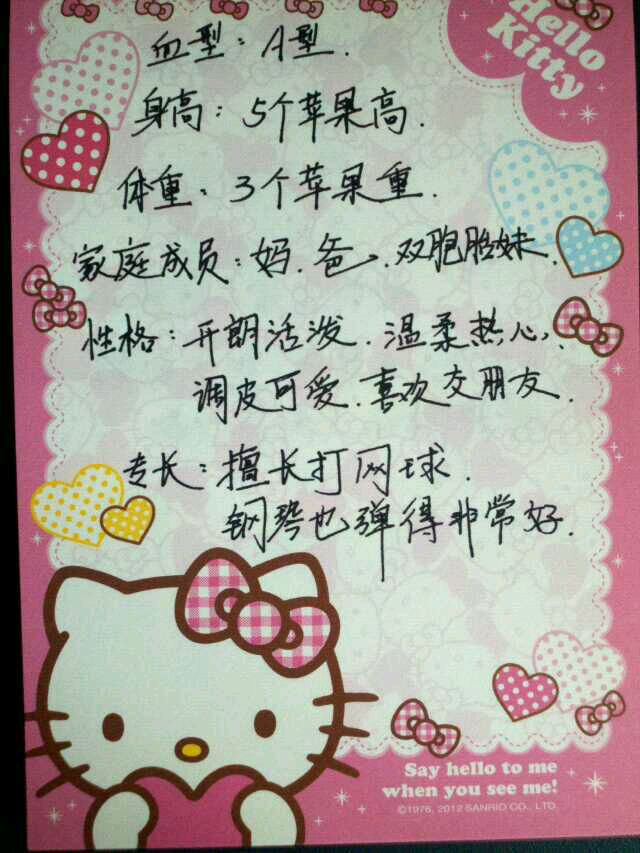 Hello
Kitty
血型：A型.
身高：5个苹果高.
体重：3个苹果重.
家庭成员：妈.爸.双胞胎妹.
性格：开朗活泼.温柔热心.
调皮可爱.喜欢交朋友.
专长：擅长打网球.
钢琴也弹得非常好.
Say hello to me
when you see me!
©1976, 2012 SANRIO CO., LTD.